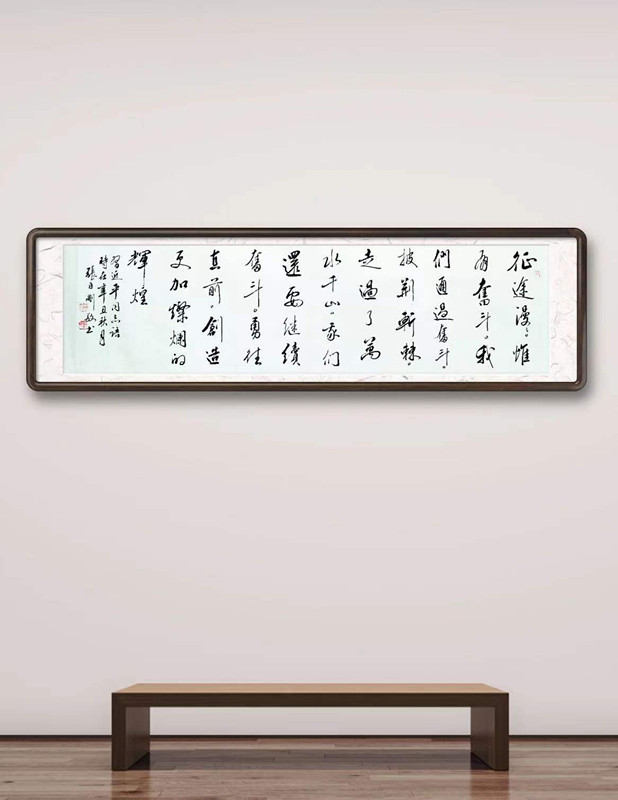 征途漫漫，惟
有奮斗。我
們通過奮斗，
披荆斬棘，
走過了萬
水千山。我們
還要继續
奮斗，勇往
直前，創造
更加燦爛的
輝煌
習近平同志語
時在辛丑秋月
張自刚敬書